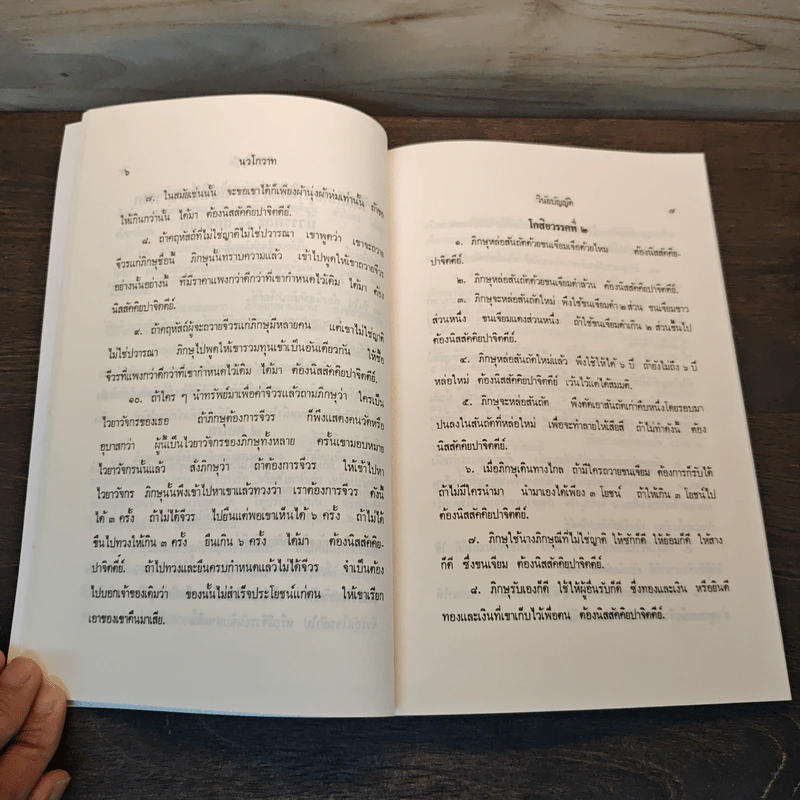 ๖
นวโกวาท
๗. ในสมัยเช่นนั้น จะขอเขาได้ก็เพียงผ้านุ่งผ้าห่มเท่านั้น ถ้าขอ
ให้เกินกว่านั้น ได้มา ต้องนิสสัคคิยปาจิตตีย์.
๘. ถ้าคฤหัสถ์ที่ไม่ใช่ญาติไม่ใช่ปวารณา เขาพูดว่า เขาจะถวาย
จีวรแก่ภิกษุชื่อนี้ ภิกษุนั้นทราบความแล้ว เข้าไปพูดให้เขาถวายจีวร
อย่างนั้นอย่างนี้ ที่มีราคาแพงกว่าดีกว่าที่เขากำหนดไว้เดิม ได้มา ต้อง
นิสสัคคิยปาจิตตีย์.
๙. ถ้าคฤหัสถ์ผู้จะถวายจีวรแก่ภิกษุมีหลายคน แต่เขาไม่ใช่ญาติ
ไม่ใช่ปวารณา ภิกษุไปพูดให้เขารวมทุนเข้าเป็นอันเดียวกัน ให้ซื้อ
จีวรที่แพงกว่าดีกว่าที่เขากำหนดไว้เดิม ได้มา ต้องนิสสัคคิยปาจิตตีย์.
๑๐. ถ้าใคร ๆ นำทรัพย์มาเพื่อค่าจีวรแล้วถามภิกษุว่า ใครเป็น
ไวยาวัจกรของเธอ ถ้าภิกษุต้องการจีวร ก็พึงแสดงคนวัดหรือ
อุบาสกว่า ผู้นี้เป็นไวยาวัจกรของภิกษุทั้งหลาย ครั้นเขามอบหมาย
ไวยาวัจกรนั้นแล้ว สั่งภิกษุว่า ถ้าต้องการจีวร ให้เข้าไปหา
ไวยาวัจกร ภิกษุนั้นพึงเข้าไปหาเขาแล้วทวงว่า เราต้องการจีวร ดังนี้
ได้ ๓ ครั้ง ถ้าไม่ได้จีวร ไปยืนแต่พอเขาเห็นได้ ๖ ครั้ง ถ้าไม่ได้
ขืนไปทวงให้เกิน ๓ ครั้ง ยืนเกิน ๖ ครั้ง ได้มา ต้องนิสสัคคิย-
ปาจิตตีย์. ถ้าไปทวงและยืนครบกำหนดแล้วไม่ได้จีวร จำเป็นต้อง
ไปบอกเจ้าของเดิมว่า ของนั้นไม่สำเร็จประโยชน์แก่ตน ให้เขาเรียก
เอาของเขาคืนมาเสีย.
วินัยบัญญัติ
๗
โกสิยวรรคที่ ๒
๑. ภิกษุหล่อสันถัตด้วยขนเจียมเจือด้วยไหม ต้องนิสสัคคิย-
ปาจิตตีย์.
๒. ภิกษุหล่อสันถัตด้วยขนเจียมดำล้วน ต้องนิสสัคคิยปาจิตตีย์.
๓. ภิกษุจะหล่อสันถัตใหม่ พึงใช้ขนเจียมดำ ๒ ส่วน ขนเจียมขาว
ส่วนหนึ่ง ขนเจียมแดงส่วนหนึ่ง ถ้าใช้ขนเจียมดำเกิน ๒ ส่วนขึ้นไป
ต้องนิสสัคคิยปาจิตตีย์.
๔. ภิกษุหล่อสันถัตใหม่แล้ว พึงใช้ให้ได้ ๖ ปี ถ้ายังไม่ถึง ๖ ปี
หล่อใหม่ ต้องนิสสัคคิยปาจิตตีย์ เว้นไว้แต่ได้สมมติ.
๕. ภิกษุจะหล่อสันถัต พึงตัดเอาสันถัตเก่าคืบหนึ่งโดยรอบมา
ปนลงในสันถัตที่หล่อใหม่ เพื่อจะทำลายให้เสียสี ถ้าไม่ทำดังนี้ ต้อง
นิสสัคคิยปาจิตตีย์.
๖. เมื่อภิกษุเดินทางไกล ถ้ามีใครถวายขนเจียม ต้องการก็รับได้
ถ้าไม่มีใครนำมา นำมาเองได้เพียง ๓ โยชน์ ถ้าให้เกิน ๓ โยชน์ไป
ต้องนิสสัคคิยปาจิตตีย์.
๗. ภิกษุใช้นางภิกษุณีที่ไม่ใช่ญาติ ให้ซักก็ดี ให้ย้อมก็ดี ให้สาง
ก็ดี ซึ่งขนเจียม ต้องนิสสัคคิยปาจิตตีย์.
๘. ภิกษุรับเองก็ดี ใช้ให้ผู้อื่นรับก็ดี ซึ่งทองและเงิน หรือยินดี
ทองและเงินที่เขาเก็บไว้เพื่อตน ต้องนิสสัคคิยปาจิตตีย์.